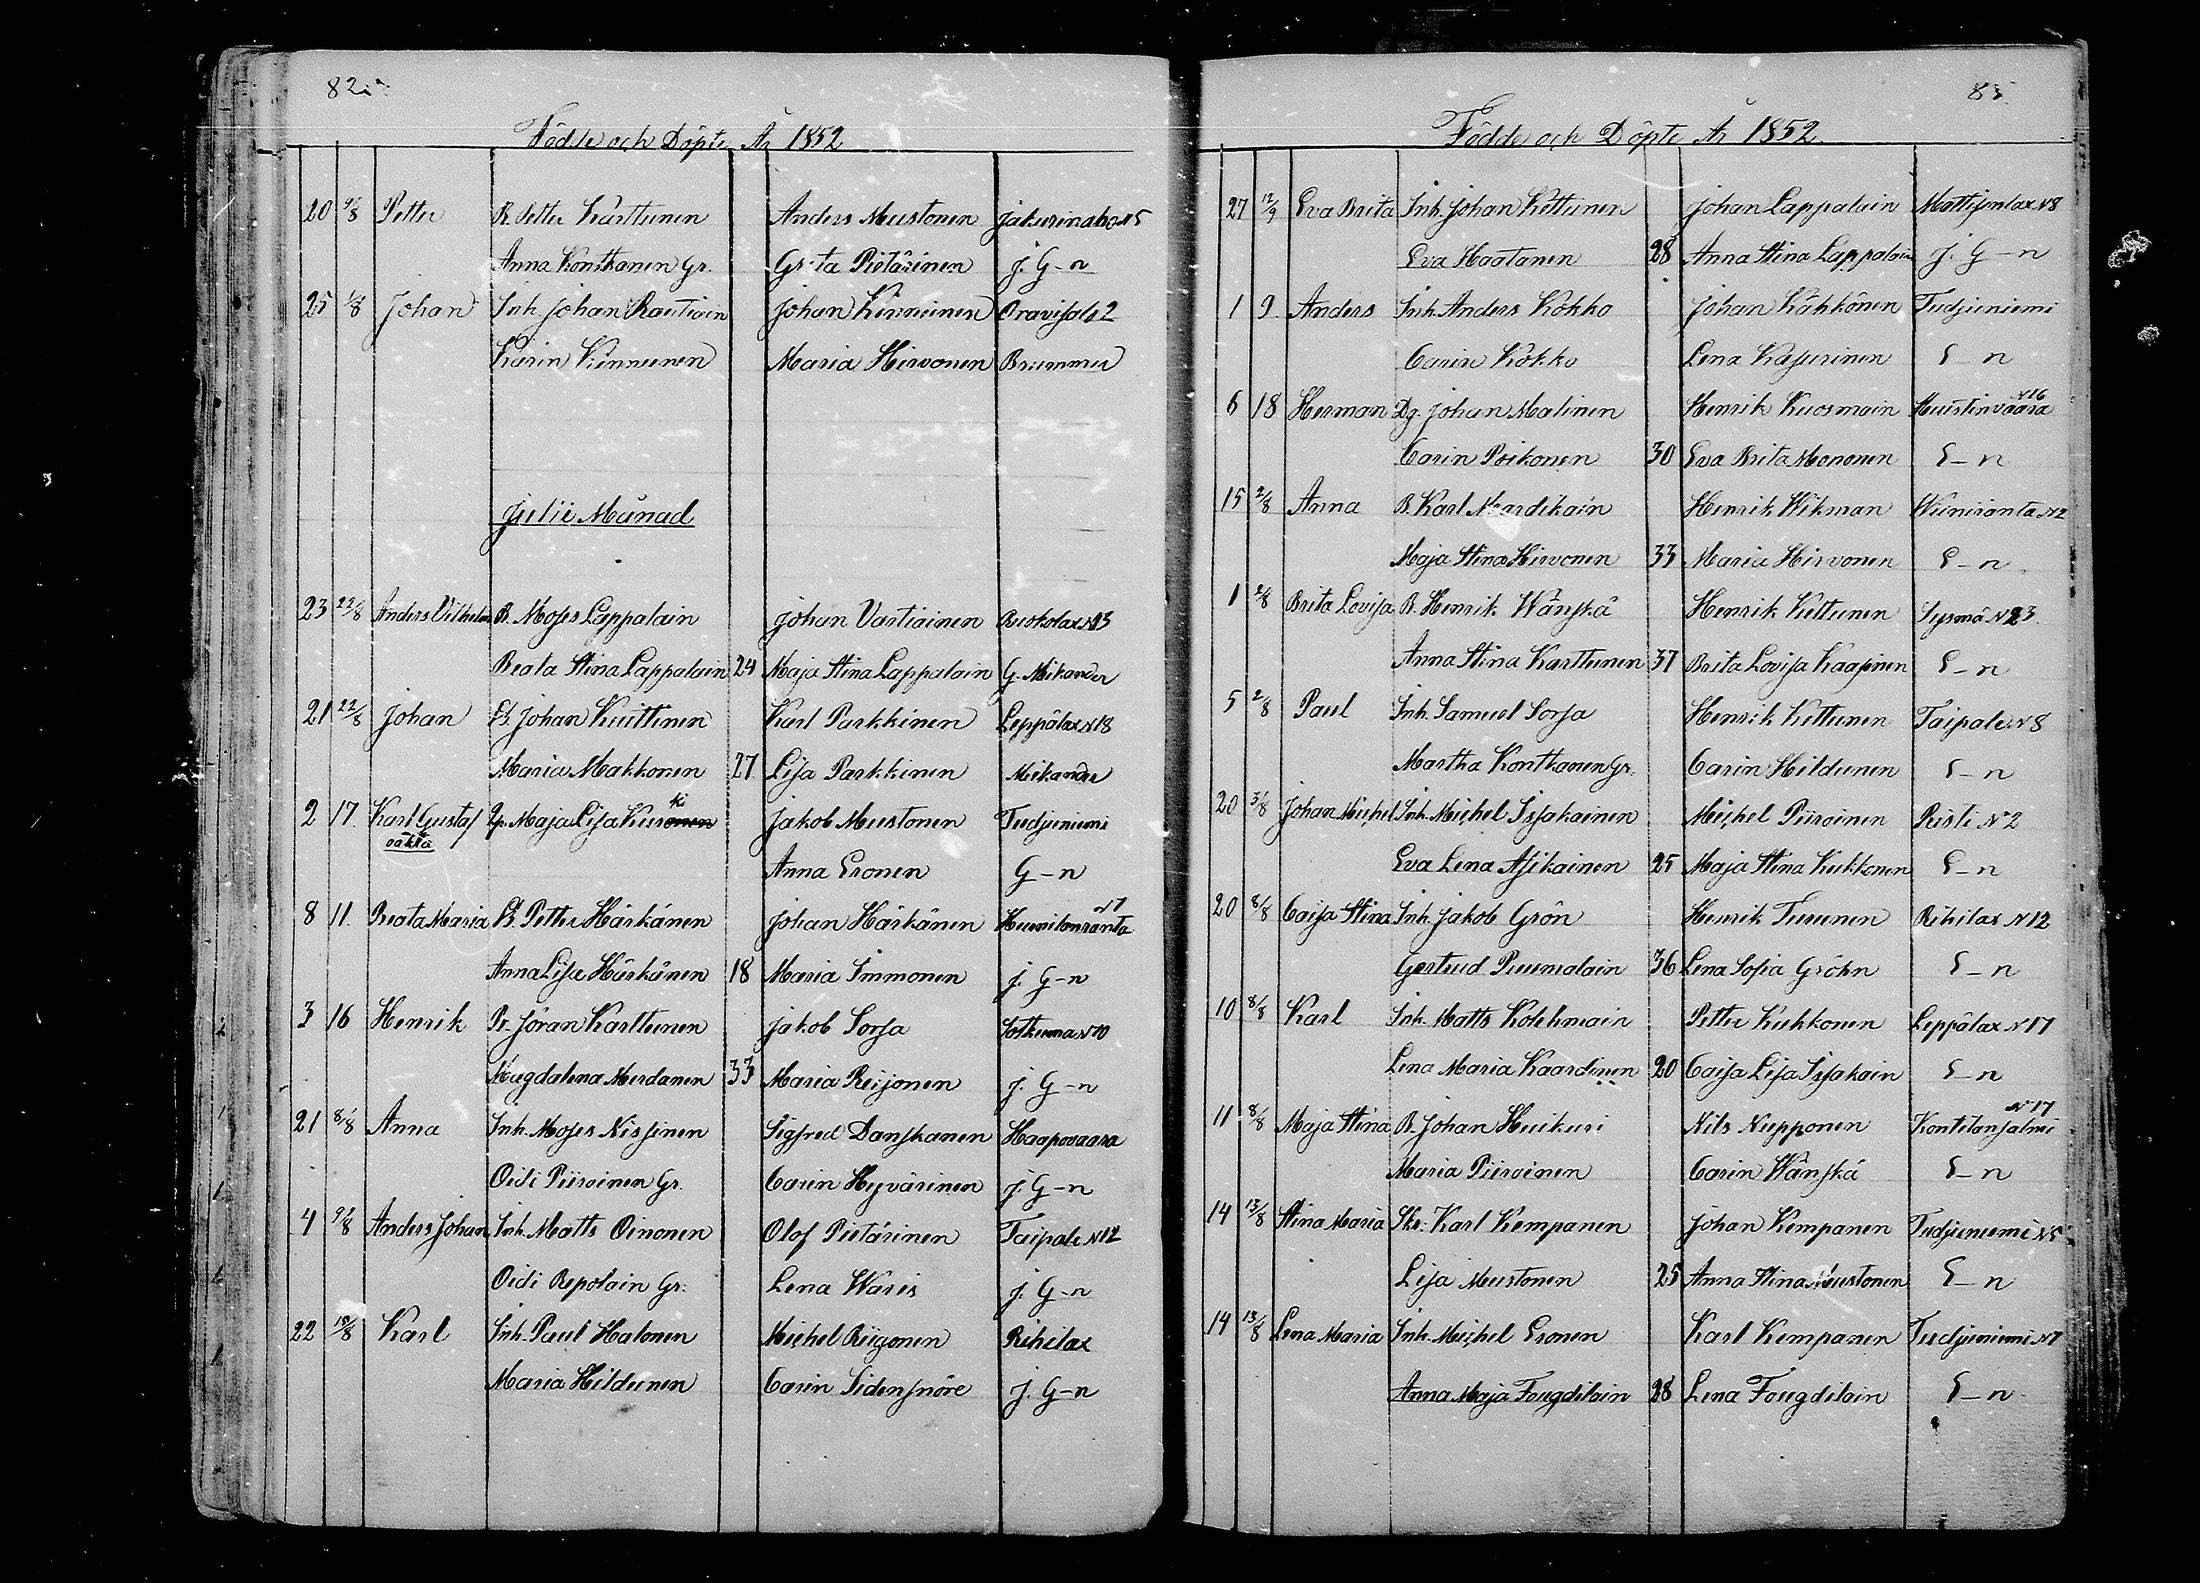 82
Födde och Döpte År 1852
20 9/8 Petter B. Petter Karttunen Anders Mustonen Jakurinaho N5
Anna Konttanen Gr. Greta Pietärinen J. G-n
25 1/8 Johan Inh. Johan Rautiain Johan Kinnunen Oravisalo 2
Karin Kinnunen Maria Hirvonen Brummer
Julii Månad
23 22/8 Anders Vilhelm B. Moses Lappalain Johan Vartiainen Ruskolax N13
Beata Stina Lappalain 24 Maja Stina Lappalain G. Mikander
21 22/8 Johan B. Johan Kuittinen Karl Parkkinen Leppälax N18
Maria Makkonen 27 Lisa Parkkinen Mikander
2 17. Karl Gustaf Maja Lisa Jakob Mustonen Tudjuniemi
oäkta Anna Eronen G-n
8 11. Beata Maria B. Petter Härkänen Johan Härkänen Huunitonranta N7
Anna Lisa Härkänen 18 Maria Immonen J. G-n
3 16 Henrik B. Jöran Karttunen Jakob Sorsa Sotkuma N10
Magdalena Merdanen 33 Maria Reijonen J. G-n
21 8/8 Anna Inh. Moses Nissinen Sigfred Danskanen Haapovaara
Oidi Piiroinen Gr. Carin Hyvärinen J. G-n
4 9/8 Anders Johan Inh. Matts Oinonen Olof Pietärinen Taipale N12
Oidi Repolain Gr. Lena Waris J. G-n
22 15/8 Karl Inh. Paul Halonen Michel Riigonen Rihilax
Maria Hildunen Carin Sidensnöre J. G-n
83.
Födde och Döpte År 1852.
27 12/9 Eva Brita Inh. Johan Kettunen Johan Lappalain Mattisenlax N8
Eva Haatanen 28 Anna Stina Lappalain J. G-n
1 9. Anders Inh. Anders Kokko Johan Kähkönen Tudjuniemi
Carin Kokko Lena Kasurinen E-n
6 18 Herman Dg. Johan Malinen Henrik Kuosmain Mustinvaara N16
Carin Poikonen 30 Eva Brita Mononen E-n
15 2/8 Anna B. Karl Mardikain Henrik Wikman Wiiniranta N2
Maja Stina Hirvonen 33 Maria Hirvonen E-n
1 2/8 Brita Lovisa B. Henrik Wänskä Henrik Kettunen Sysmä N23
Anna Stina Karttunen 37 Brita Lovisa Kaapinen E-n
5 2/8 Paul Inh. Samuel Sorsa Henrik Kettunen Taipale N8
Martha Konttanen Gr. Carin Hildunen E-n
20 3/8 Johan Michel Inh. Michel Issakainen Michel Piiroinen Risti N2
Eva Lena Asikainen 25 Maja Stina Kukkonen E-n
20 8/8 Caisa Stina Inh. Jakob Grön Henrik Turunen Rihilax N12
Gertrud Puumalain 36 Lena Sofia Gröhn E-n
10 8/8 Karl Inh. Matts Kolehmain Petter Kuhkonen Leppälax N17
Lena Maria Kaardinen 20 Caisa Lisa Issakain E-n
11 8/8 Maja Stina B. Johan Huikuri Nils Nupponen Kontilansalmi N17
Maria Piiroinen Carin Wänskä E-n
14 13/8 Stina Maria Skr: Karl Kempanen Johan Kempanen Tudjuniemi N5
Lisa Mustonen 25 Anna Stina Mustonen E-n
14 13/8 Lena Maria Inh. Michel Eronen Karl Kempanen Tudjuniemi N7
Anna Maja Fougdilain 28 Lena Fougdilain E-n